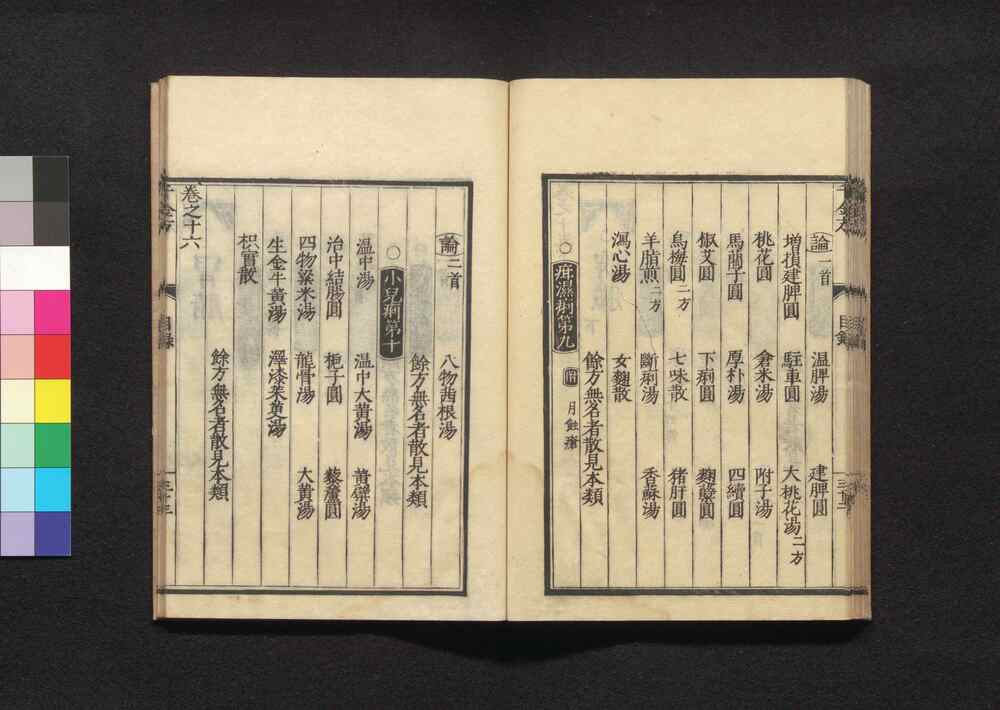 論一首 温脾湯 建脾圓
増損建脾圓 駐車圓 大桃花湯二方
桃花圓 倉米湯 附子湯
馬藺子圓 厚朴湯 四續圓
椒艾圓 下痢圓 麴蘗圓
烏梅圓二方 七味散 猪肝圓
羊脂煎二方 斷痢湯 香蘇湯
瀉心湯 女麴散
餘方無名者散見本類
○疳濕痢第九 附 月蝕瘡
論三首 八物茜根湯
餘方無名者散見本類
○小兒痢第十
温中湯 温中大黄湯 黄蘗湯
治中結腸圓 梔子圓 藜蘆圓
四物粱米湯 龍骨湯 大黄湯
生金牛黄湯 澤漆茱萸湯
枳實散
餘方無名者散見本類
卷之十六
目錄